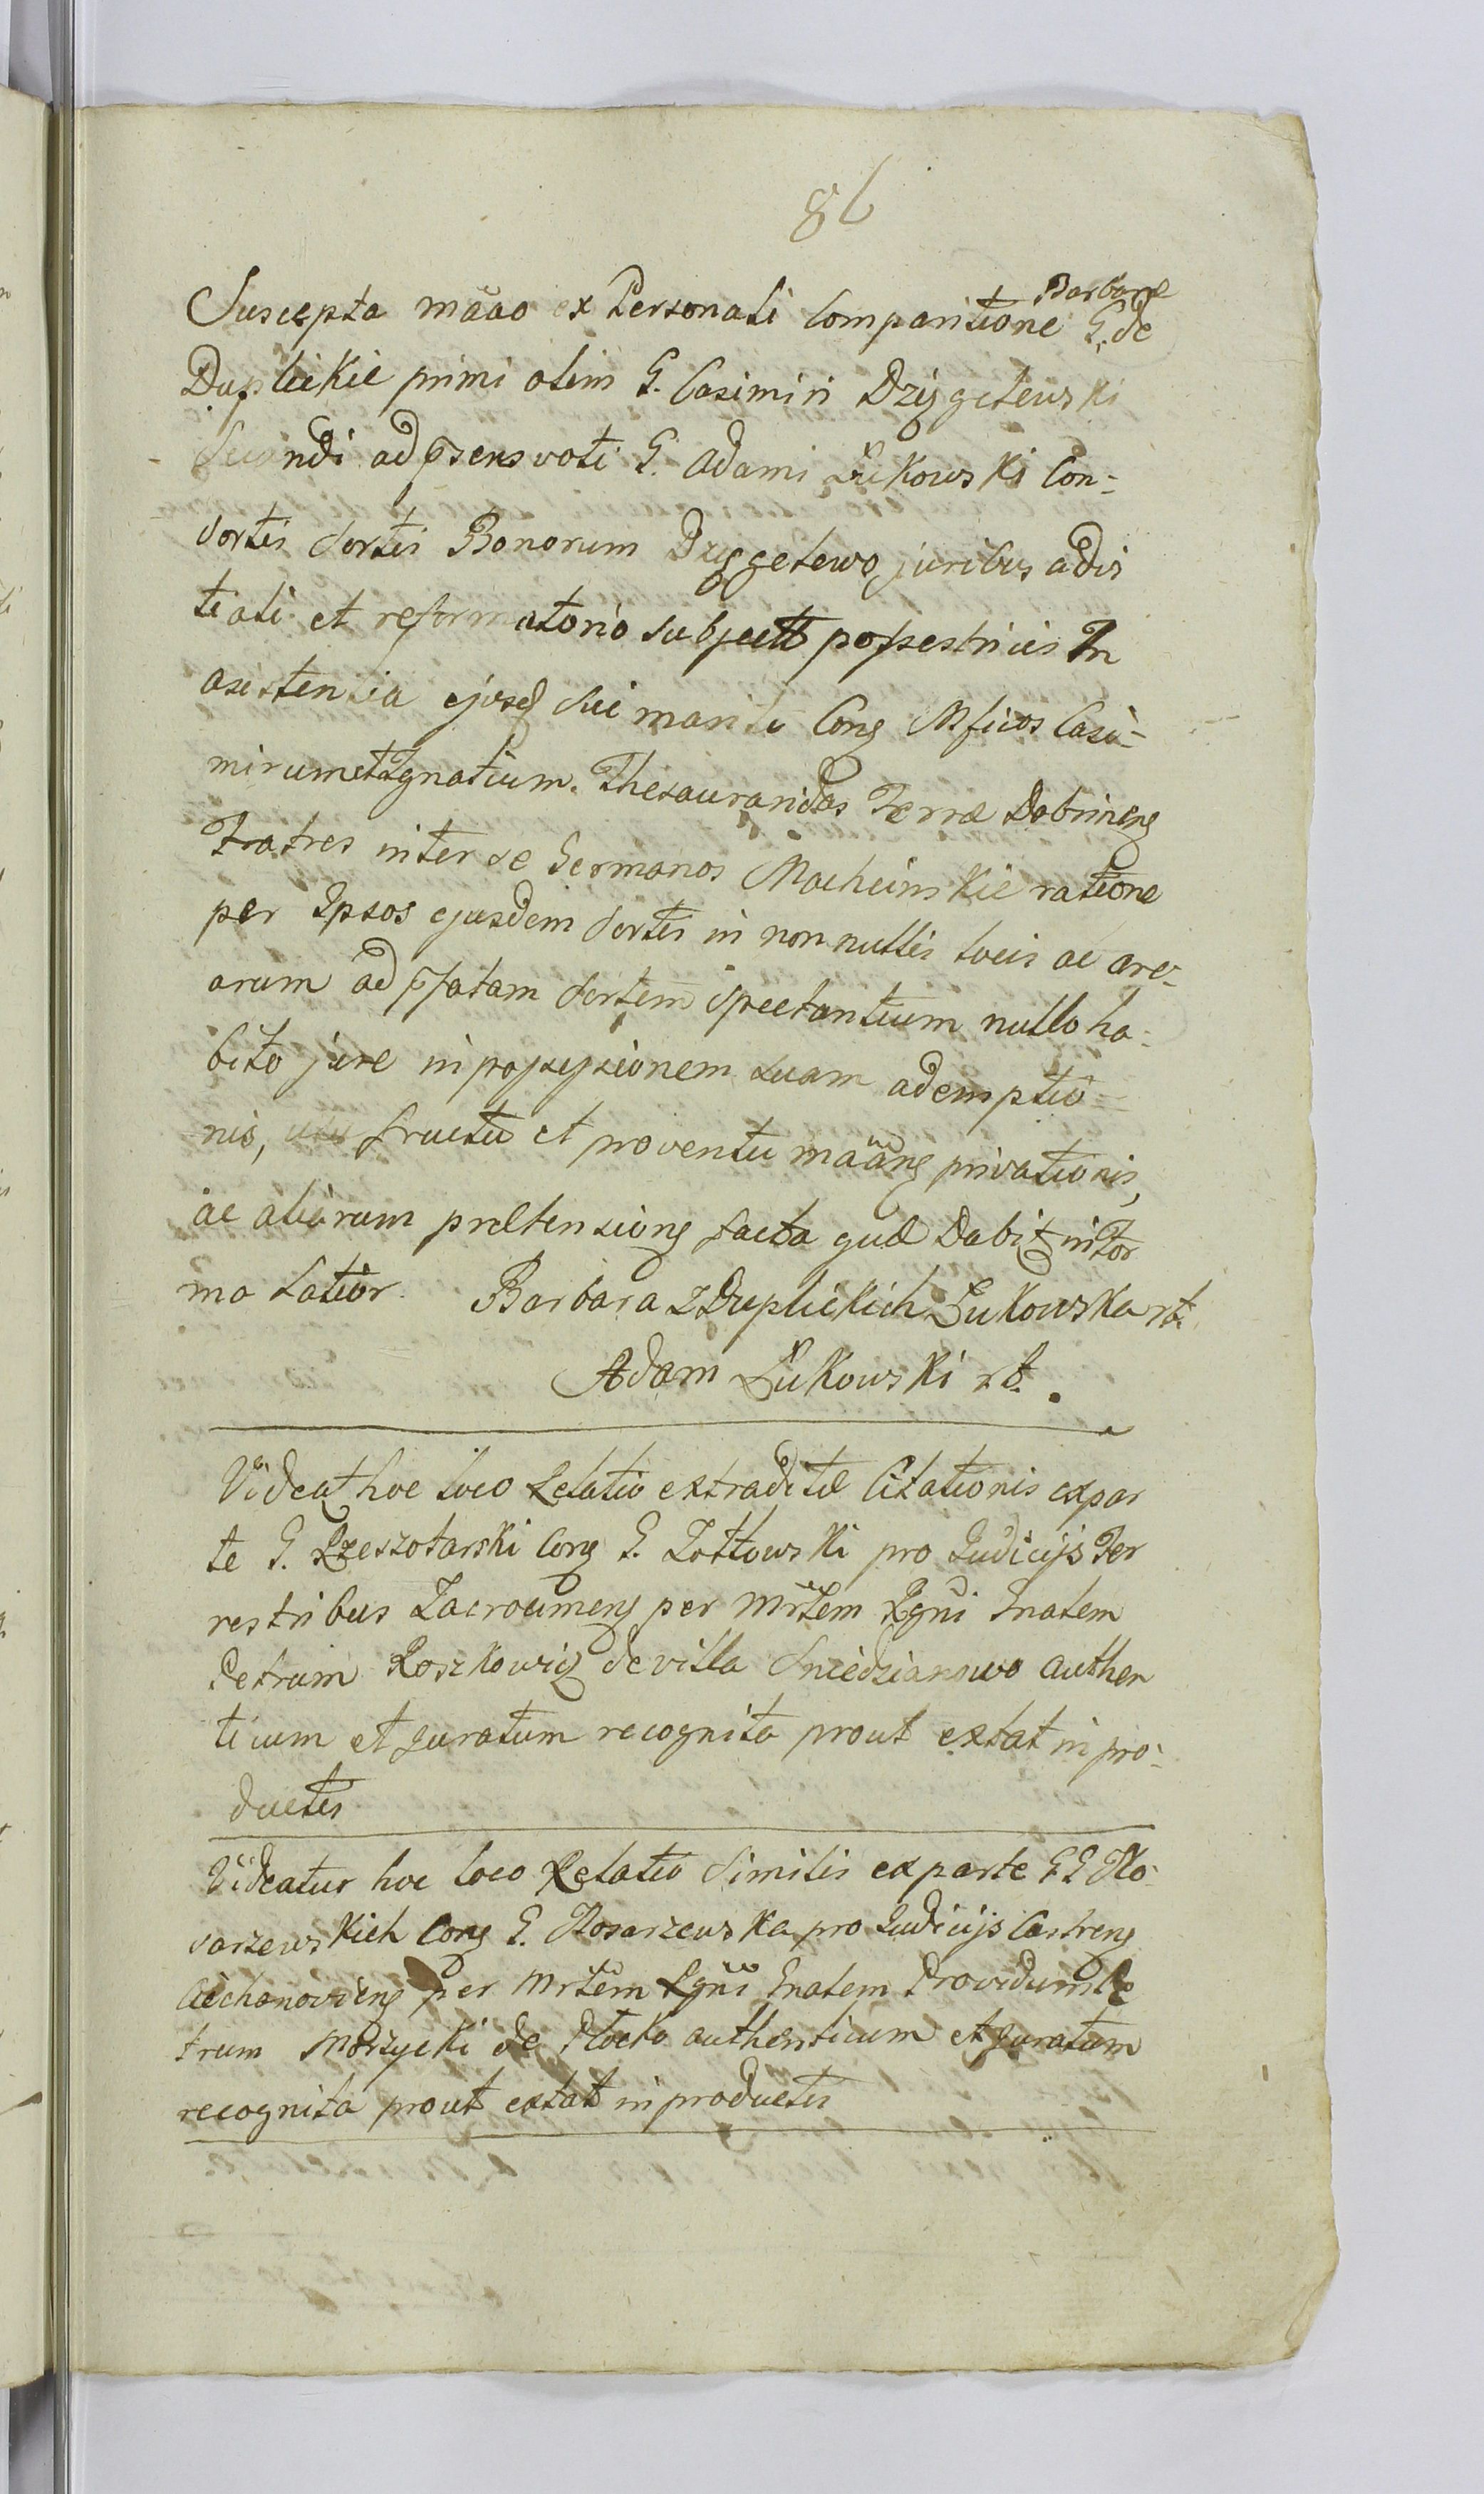 86
Suscepta mãao ex Personali Comparitione G. Barbaræ de
Duplickie primi olim G. Casimiri Dzięgelewski
Secundi ad p̃sens voti G. Adami Łukowski Con=
sortis Sortis Bonorum Dzięgelewo juribus advi
tiali et reformatorio subject possestricis In
asistentia ejusd sui mariti Cong Mficos Casi=
mirum et Ignatium. Thesauraridas Terræ Dobrineng
Fratres inter se Germanos Machcinskie ratione
per Ipsos ejusdem Sortis in non nullis locis ac are=
arum ad p̃fatam Sortem spectantium nullo ha=
bito jure in possessionem suam ademptio=
nis, usu fructu et proventu mãang privationis,
ac aliarum prætensiong facta quæ Dabit in for
ma Latior. Barbara z Duplickich Łukowska rb.
Adam Łukowski rb.
Videat hoc loco Relatio extraditæ Citationis ex par
te G. Rzeszotarski Cong G. Zottowski pro Judicijs Ter
restribus Zacrocimeng per Mrlem Rgni Gnalem
Petrum Roszkowicz de villa Sniedzianowo authen
ticum et juratum recognita prout extat in pro=
ductis
Videatur hoc loco Relatio Similis ex parte GG Klo=
sarzewskich Cong G. Kosarzewska pro Judicijs Castreng
Ciechanovieng per Mrlem Rgni Gnalem Providum Pe
trum Morzycki de Plocko authenticum et juratum
recognita prout extat in productis